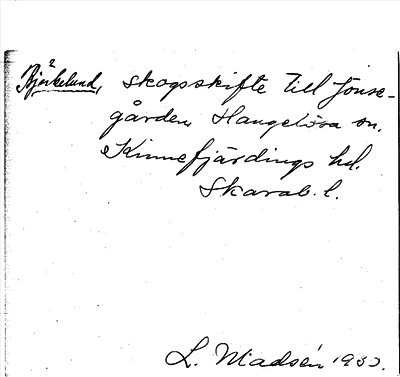 Björkelund, skogsskifte till Jönse-
gården, Hangelösa sn.
Kinnefjärdings hd.
Skarab. l.
L. Madsén 1930.